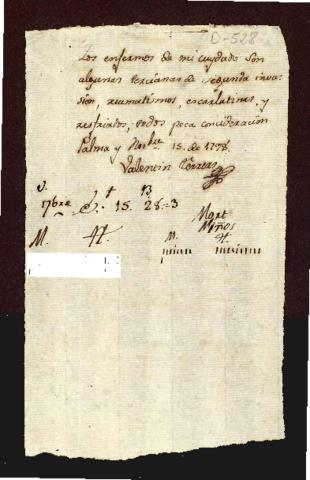 D-528
Los enfermos de mi cuydado son
algunas tercianas de segunda inva-
sion, reumatismos, escarlatinas, y
resfriados, todos poca concideracion
Palma y Novbre 15. de 1778.
Valentin Torres
13
15. 28=3
Mort
Niños
M. H. M. H.